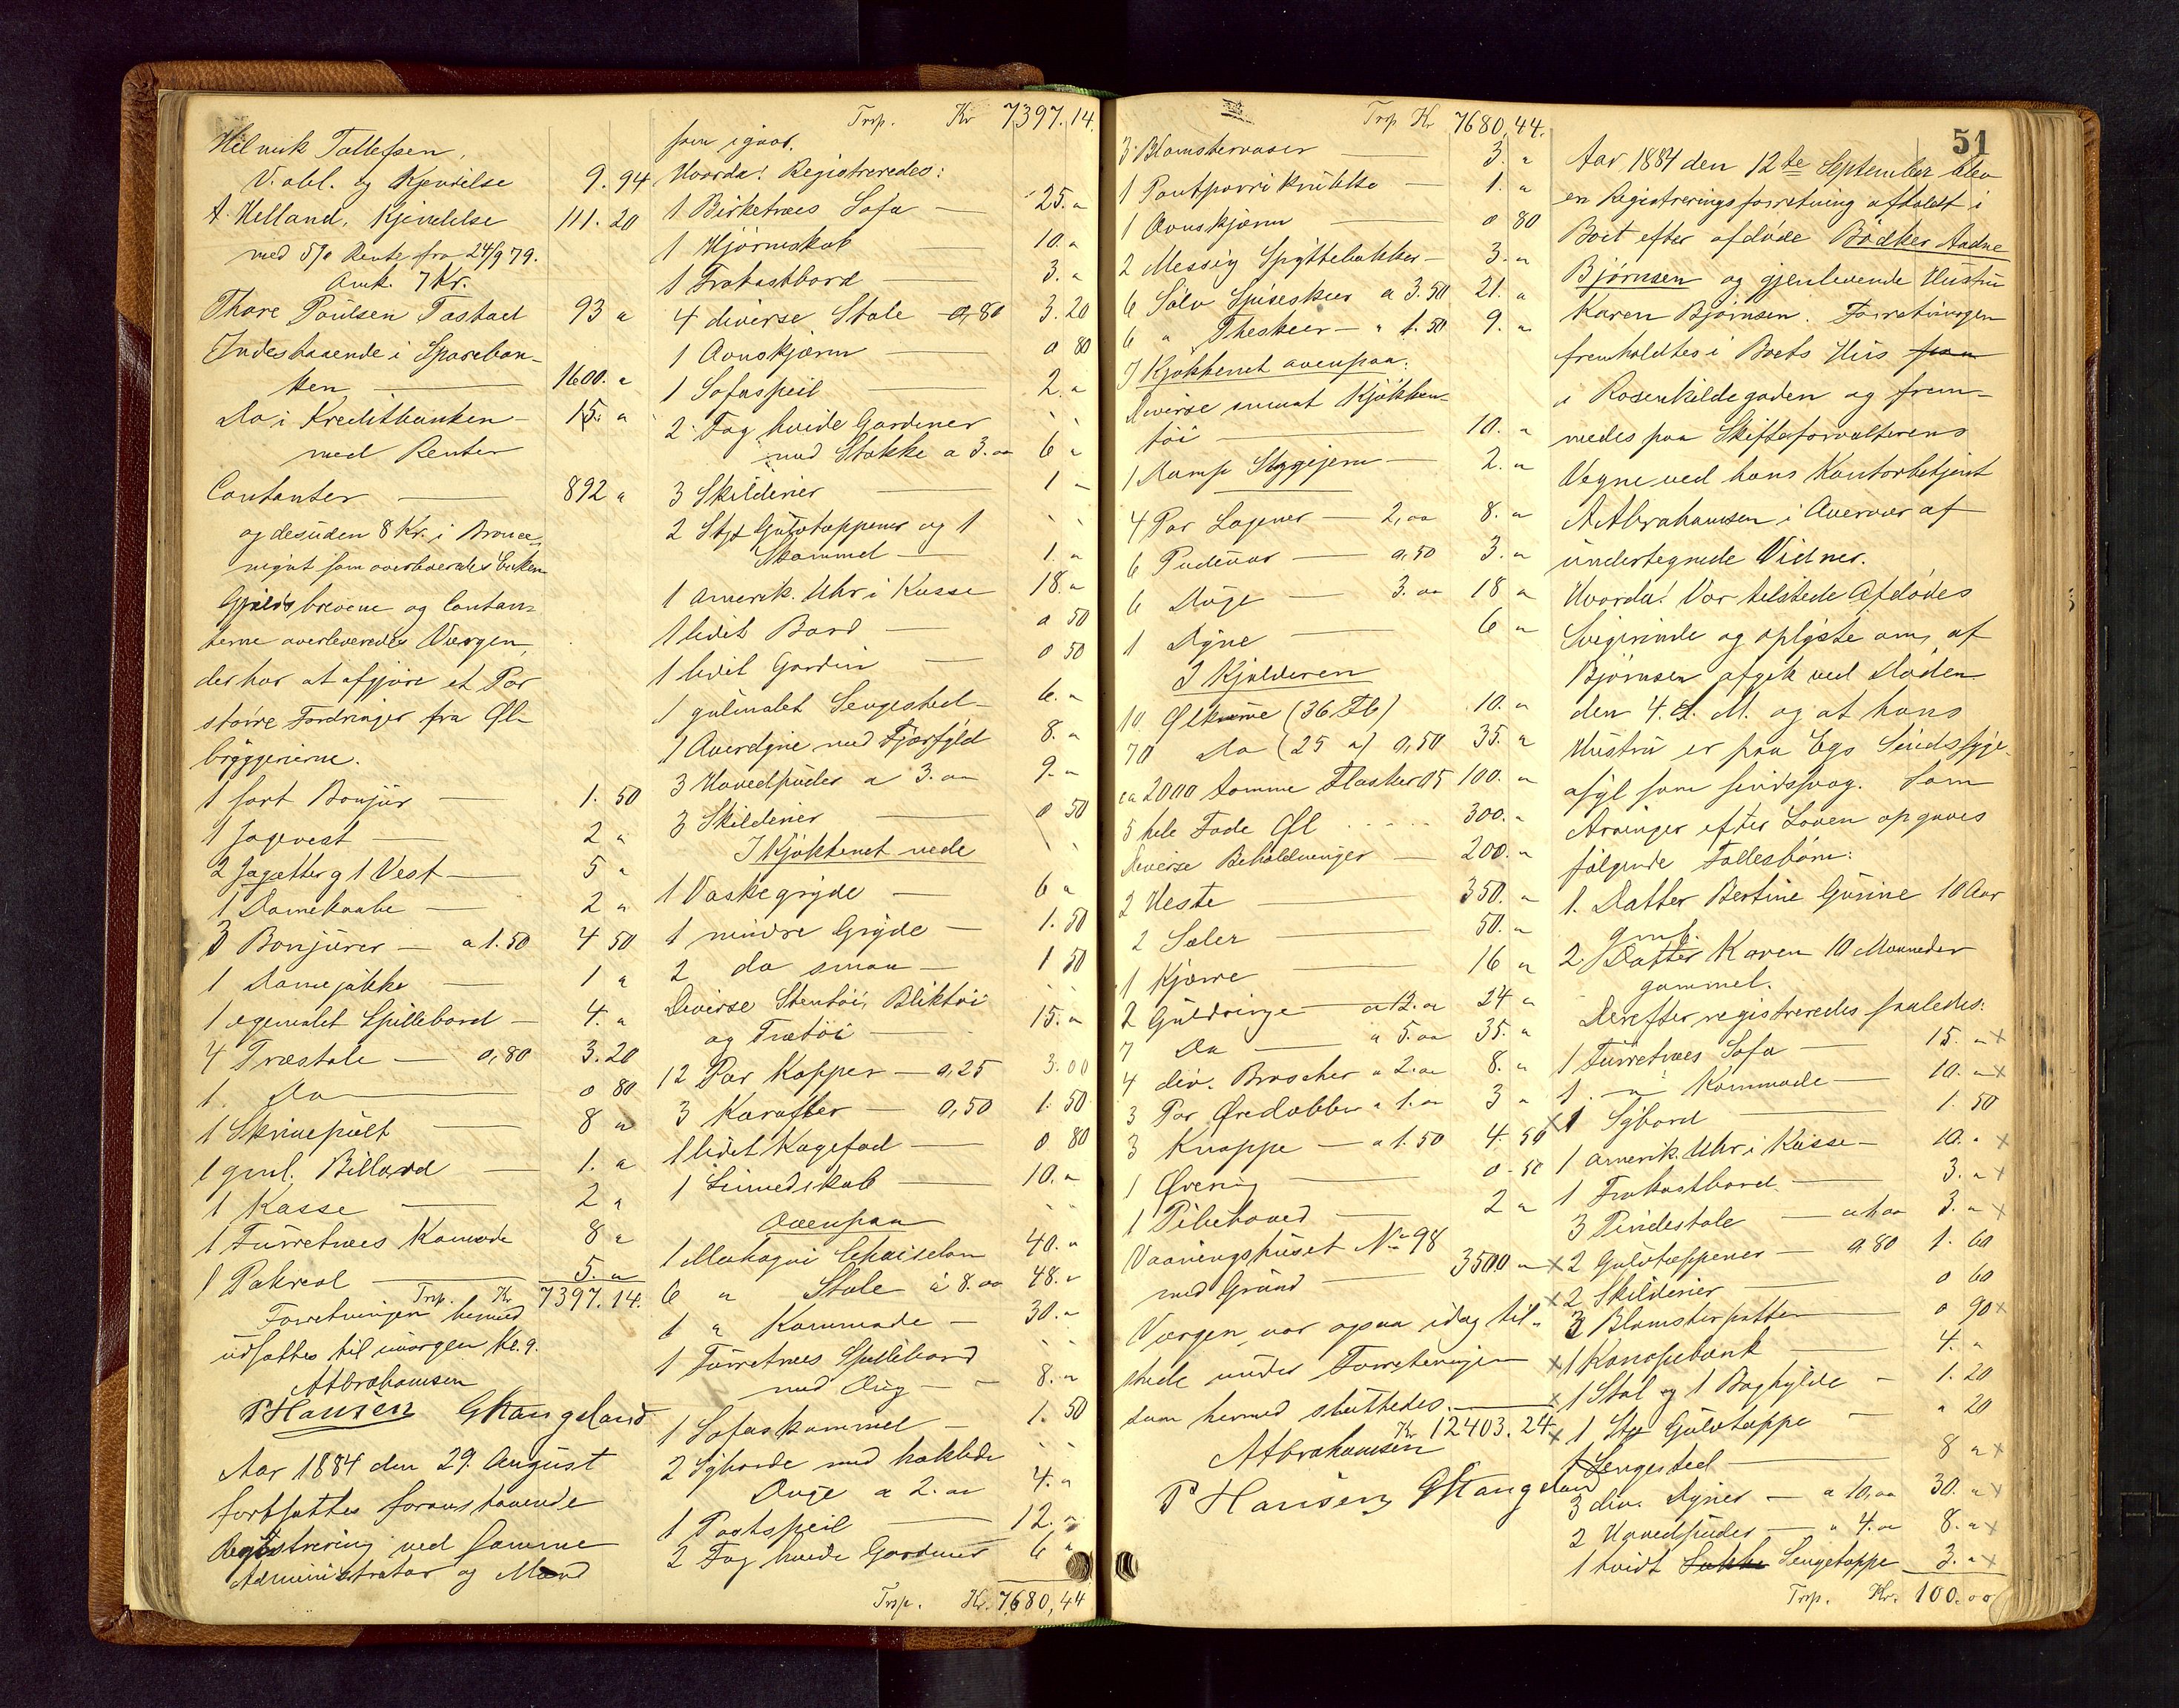 Helmik Tollefsen,
V. obl. og Kjendelse 9. 94
A. Helland, Kjendelse 111. 20
med 5% Rente fra 24/9 79.
Omk. 7 Kr.
Thore Poulsen Tastad 93 "
Indestaaende i Spareban-
ken 1600. "
Do i Kreditbanken 15. "
med Renter
Contanter 892 "
og desuden 8 Kr. i Bronce
mynt som overleveredes Enken
Gjeldsbrevene og Contan-
terne overleveredes Værgen,
der har at afgjøre et Par
større Fordringer fra Øl-
bryggerierne.
1 sort Bonjur 1. 50
1 Jagvest 2 "
2 Jagetter og 1 Vest 5 "
1 Damekaabe 2 "
3 Bonjurer a 1.50 4 50
1 Damejakke 1 "
1 egemalet Spillebord 4. "
4 Træstole 0,80 3. 20
1 Do 0 80
1 Skrivepult 8 "
1 gml. Billard 1. "
1 Kasse 2 "
1 Furretræes Komode 8 "
1 Pakreol 5. "
Trsp. Kr 7397. 14.
Forretningen hermed
udsattes til imorgen Kl. 9.
A Abrahamsen
P Hansen G Stangeland
Aar 1884 den 29. August
fortsattes foranstaaende
Registrering ved samme
Administrator og Mænd
Trsp. Kr 7397. 14.
som igaar.
Hvorda! Registreredes:
1 Birketræes Sofa 25. "
1 Hjørneskab 10. "
1 Frokostbord 3. "
4 diverse Stole 0,80 3. 20
1 Ovnskjærm 0 80
1 Sofaspeil 2. "
2 Fag hvide Gardiner
med Stokke a 3. " 6 "
3 Skilderier 1 "
2 Stk Gulvtæpper og 1
Skammel 1. "
1 Amerik. Uhr i Kasse 18. "
1 lidet Bord 0 50
1 lidet Gardin 0 50
1 gulmalet Sengested 6. "
1 Overdyne med Fjærfyld 8. "
3 Hovedpuder a 3. " 9. "
3 Skilderier 0 50
I Kjøkkenet nede
1 Vaskegryde 6 "
1 mindre Gryde 1. 50
2 do smaa 1 50
Diverse Stentøi, Bliktøi
og Trætøi 15. "
12 Par Kopper 0,25 3. 00
3 Karafler 0,50 1. 50
1 lidet Kagefad 0 80
1 Linnedskab 10. "
Ovenpaa
1 Mahogni Chaiselon 40. "
6 " Stole à 8. " 48. "
1 " Kommode 30. "
1 Furretræes Spillebord
med Dug 8. "
1 Sofaskammel 1. 50
2 Syborde med hæklede
Duge a 2. " 4. "
1 Postspeil 12. "
2 Fag hvide Gardiner 6 "
Trsp. Kr. 7680, 44
Trsp Kr 7680, 44.
3 Blomstervaser 3. "
1 Pontpovrikrukke 1. "
1 Ovnskjærm 0 80
2 Messing Spyttebakker 3. "
6 Sølv Spiseskeer a 3.50 21. "
6 " Theskeer " 1. 50 9. "
I Kjøkkenet ovenpaa:
Diverse smaat Kjøkken-
tøi 10. "
1 Damp Strygejern 2. "
4 Par Lagener 2, " 8. "
6 Pudevar 0,50 3. "
6 Duge 3. " 18 "
1 Dyne 6 "
I Kjælderen
10 Ølkasse (36 Fl) 10. "
70 Do (25 ") 0,50 35. "
ca 2000 tomme Flasker 05 100. "
5 hele Fade Øl 300. "
Diverse Beholdninger 200. "
2 Heste 350. "
2 Seler 50. "
1 Kjærre 16 "
2 Guldringe a 12. " 24 "
7 Do " 5. " 35. "
4 div. Brocher " 2. " 8. "
3 Par Øredobber " 1. " 3 "
3 Knappe a 1. 50 4. 50
1 Ørering 0 - 50
1 Pibehoved 2 "
Vaaningshuset No 98
med Grund 3500 "
Værgen var ogsaa idag til-
stede under Forretningen
som hermed sluttedes.
Kr 12403. 24.
A Abrahamsen
P Hansen G Stangeland
51
Aar 1884 den 12te September blev
en Registreringsforretning afholdt i
Boet efter afdøde Bødker Aadne
Bjørnsen og gjenlevende Hustru
Karen Bjørnsen. Forretningen
fremholdtes i Boets Hus paa
i Rosenkildegaden og frem-
medes paa Skifteforvalterens
Vegne ved hans Kontorbetjent
A Abrahamsen i Overvær af
undertegnede Vidner.
Hvorda! Var tilstede Afdødes
Svigerinde og oplyste om, at
Bjørnsen afgik ved Døden
den 4. d. M. og at hans
Hustru er paa Egs Sindssyge-
asyl som sindssvag. Som
Arvinger efter Loven opgaves
følgende Fællesbørn:
1. Datter Bertine Gurine 10 Aar
gml.
2. Datter Karen 10 Maaneder
gammel.
Derefter registreredes saaledes:
1 Furretræes Sofa 15. " x
1 " Kommode 10. " x
x 1 Sybord 1. 50
1 amerik. Uhr i Kasse 10. " x
1 Frokostbord 3. " x
3 Pindestole a 1. " 3. " x
x 2 Gulvtæpper 0 80 1. 60
x 2 Skilderier 0 60
3 Blomsterpotter 0 90 x
x 1 Kanapebænk 4. "
x 1 Stol og 1 Boghylde 1. 20
x 1 Stk Gulvtæppe " 20
1 Sengested 8 " x
3 div. Dyner a 10, " 30. " x
2 Hovedpuder " 4. " 8. " x
1 hvidt Lakke Sengetæppe 3. " x
Trsp. Kr. 100. 00